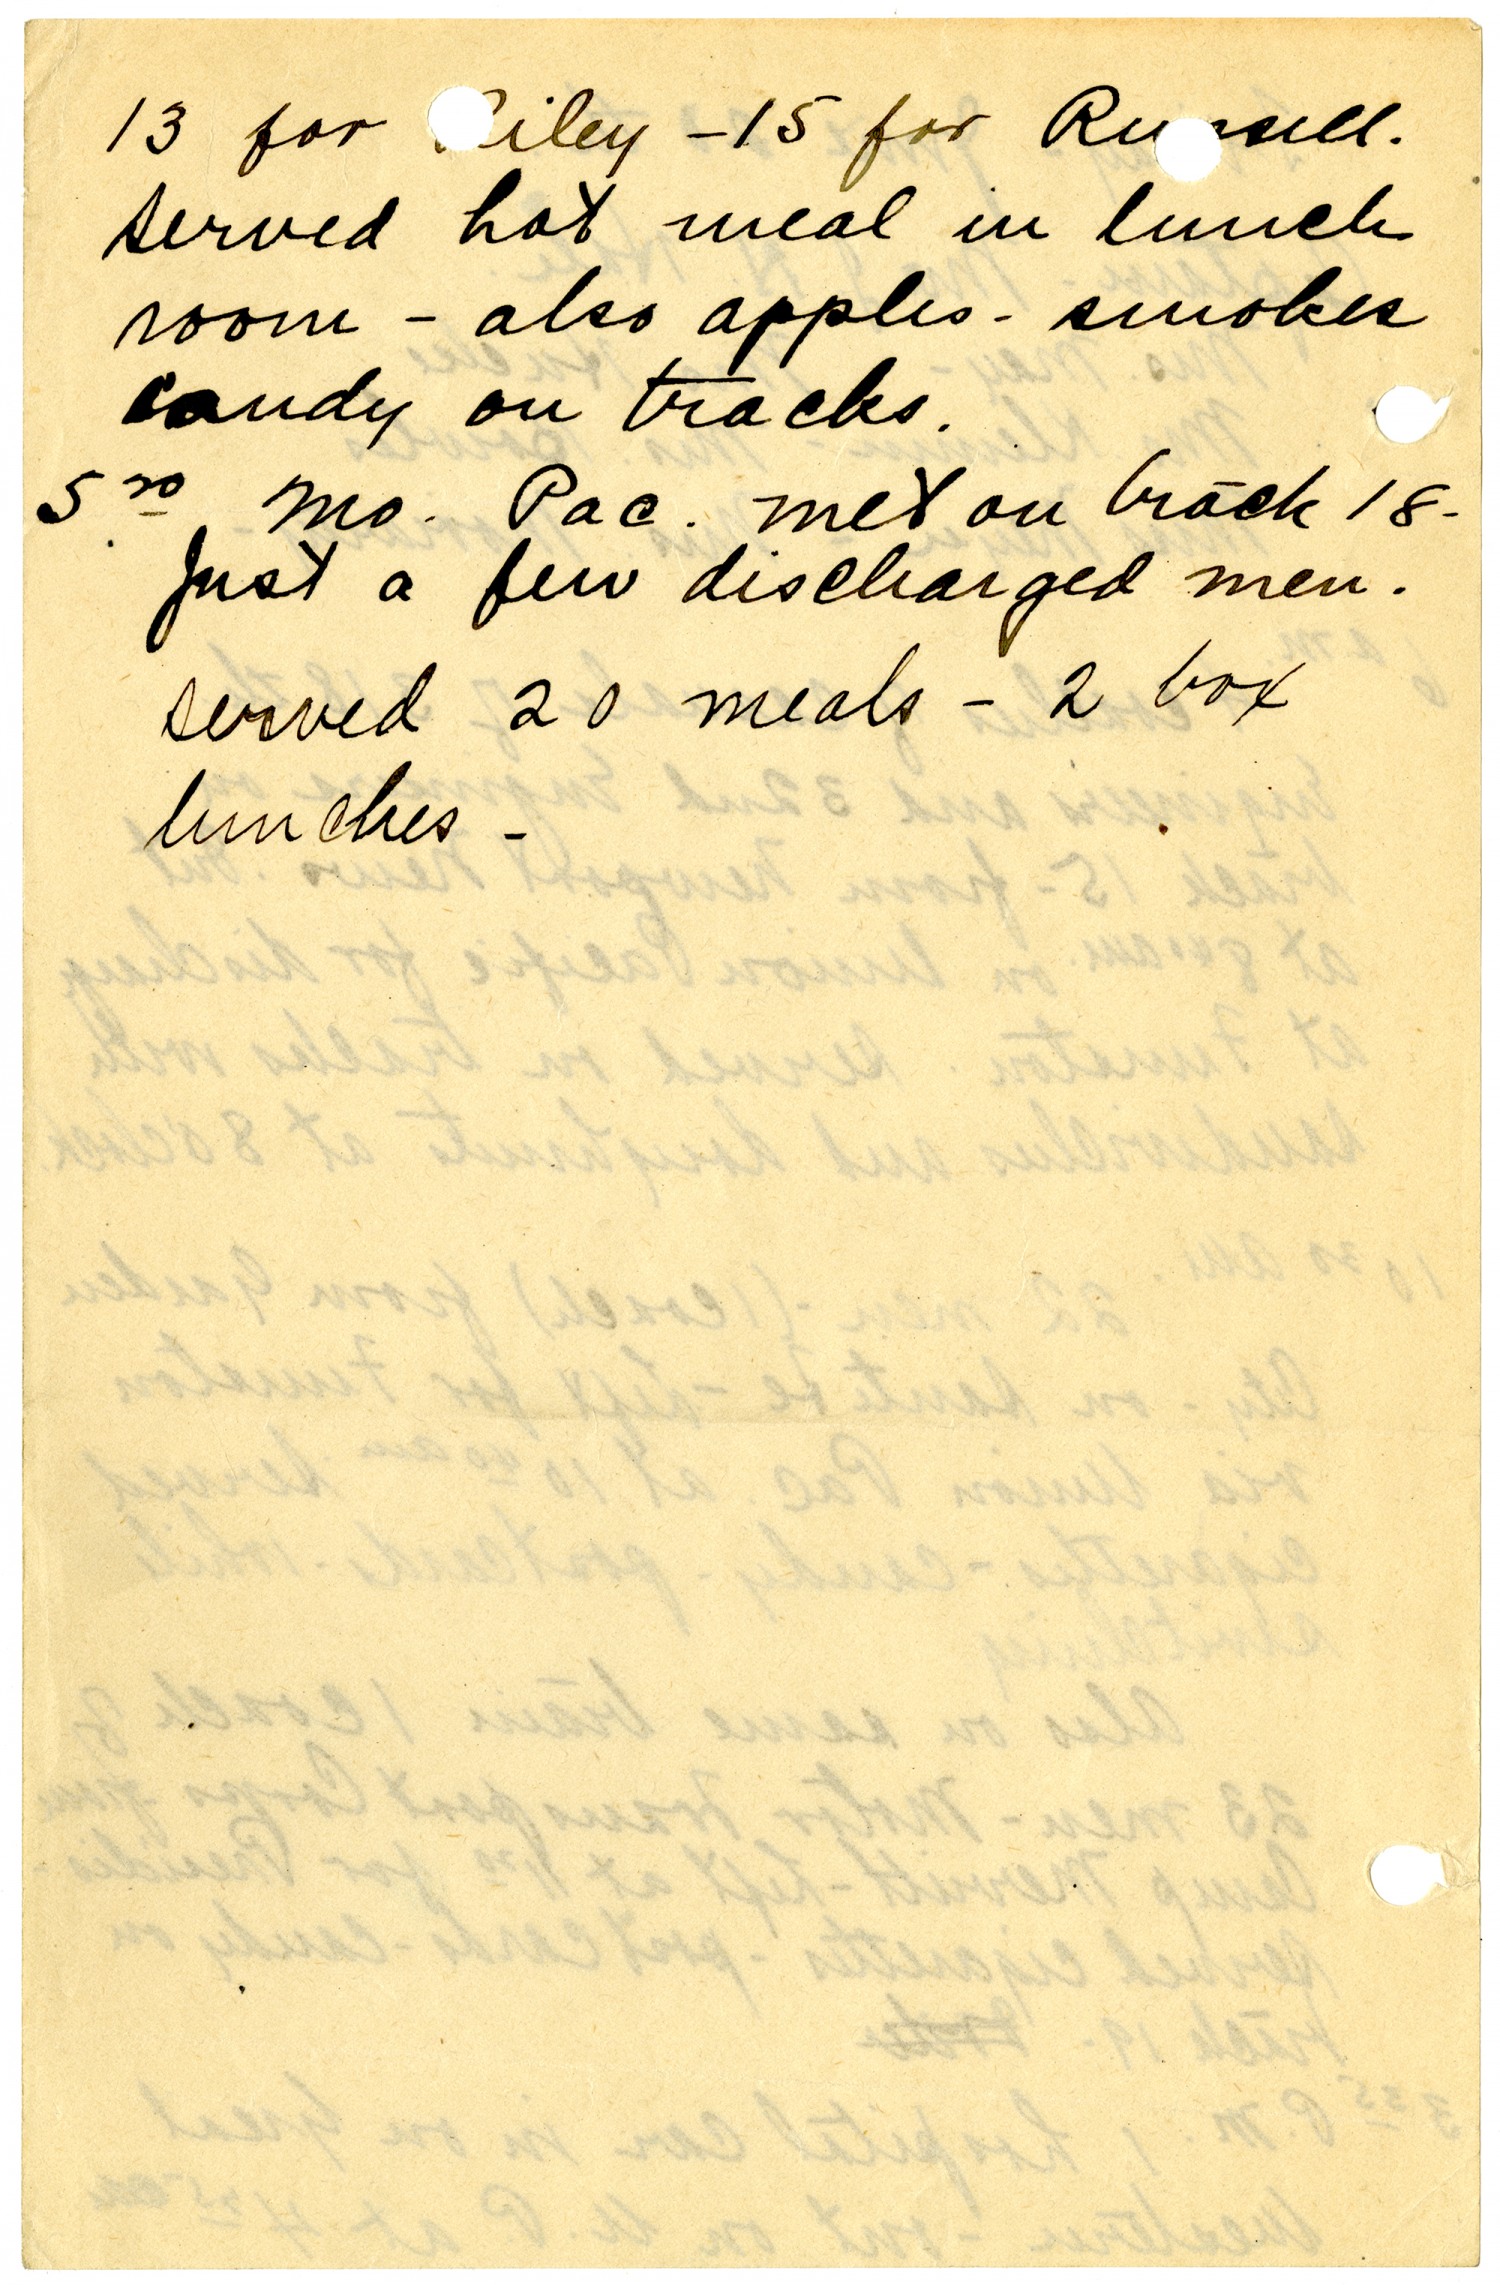 13 for Riley - 15 for Russell.
served hot meal in lunch
room - also apples - smokes
candy on tracks.
5 30 Mo. Pac. met on track 18 -
Just a few discharged men.
served 20 meals - 2 box
lunches -